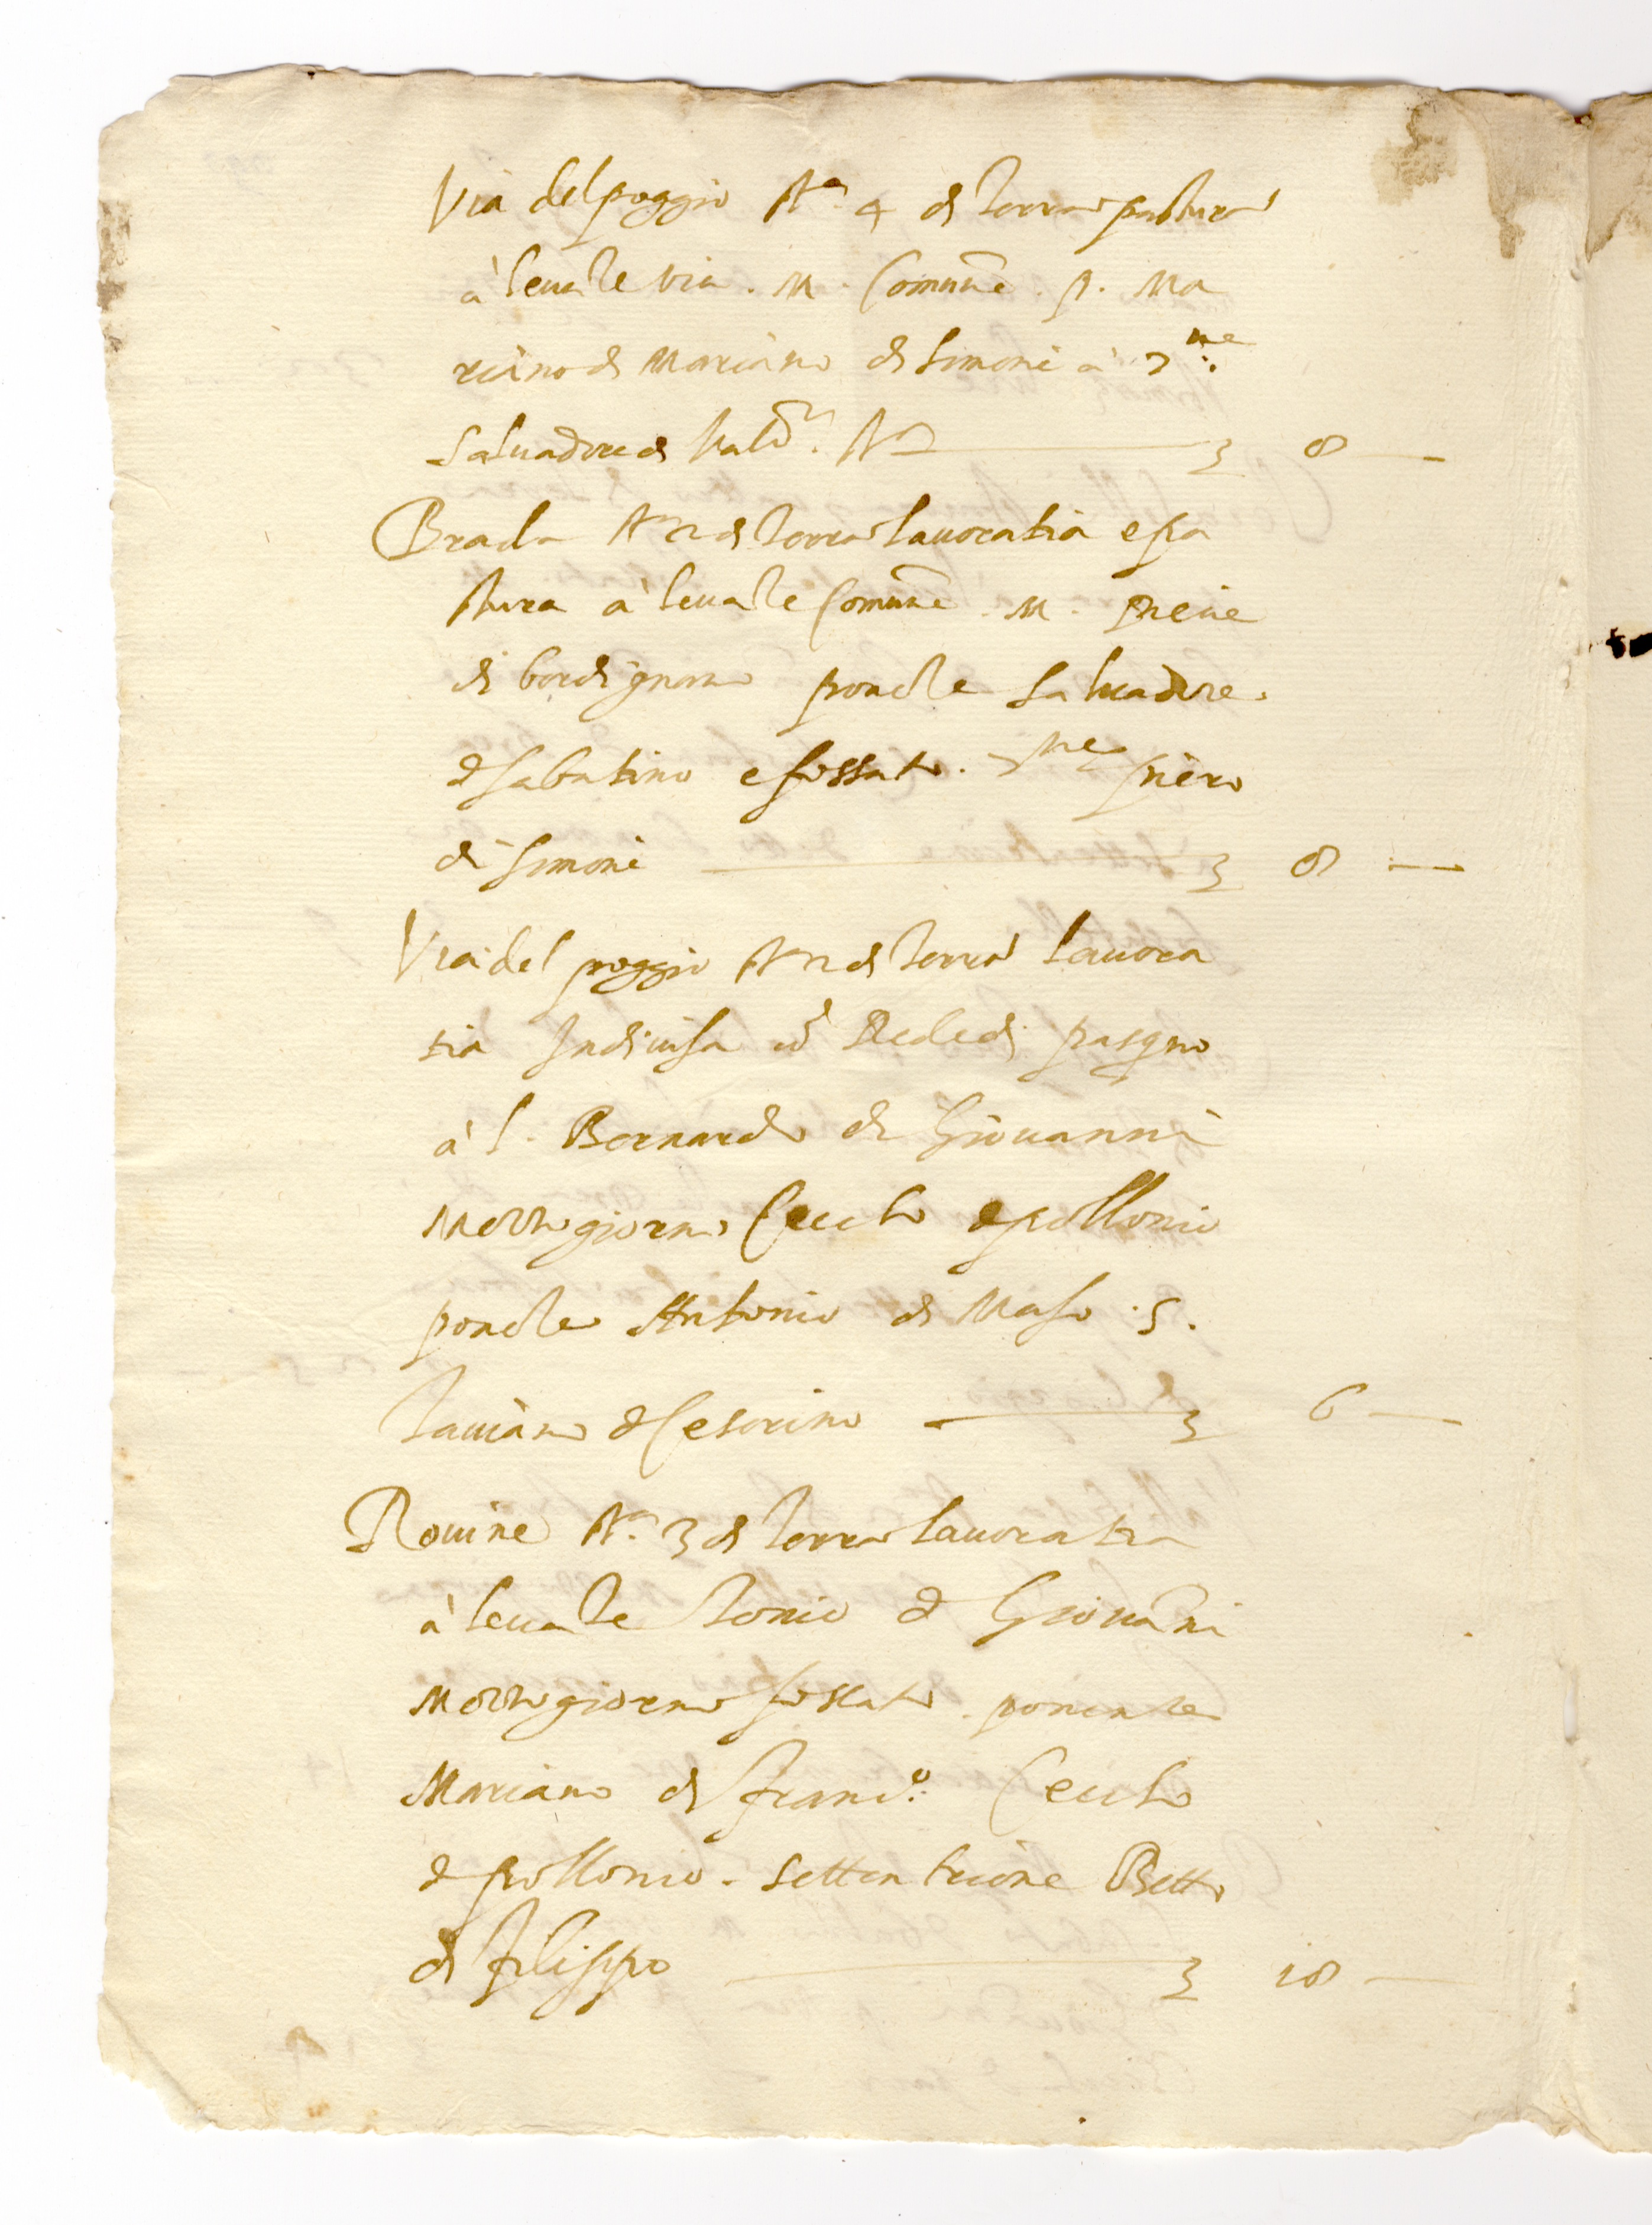 Via del poggio N.ª 4 di terra pastura
à leuāte via. M. Comune. p. Ma
riano di Mariano di Simone a
Saluadore di 3 8 —
Brada di terra lauoratia e pa
stura à leuāte Comune. M. Pieue
di bordignano ponēte Saluadore
di Sabatino e fossato. Piero
di Simone 3 8 —
Via del poggio di terra lauora
tia Indiuisa Rede di pasqno
à l. Bernardo di Giouanni
Mezzogiorno Ceccho d pollonio
ponēte Antonio di Maso. S.
Tauiano d Cesarino 3 6 —
Rouine N.ª 3 di terra lauoratia
à leuāte Tonio d Giouāni
Mezzogiorno fossato ponente
Mariano di franc.º Ceccho
d pollonio. Settentrione Betto
di Filippo 3 18 —